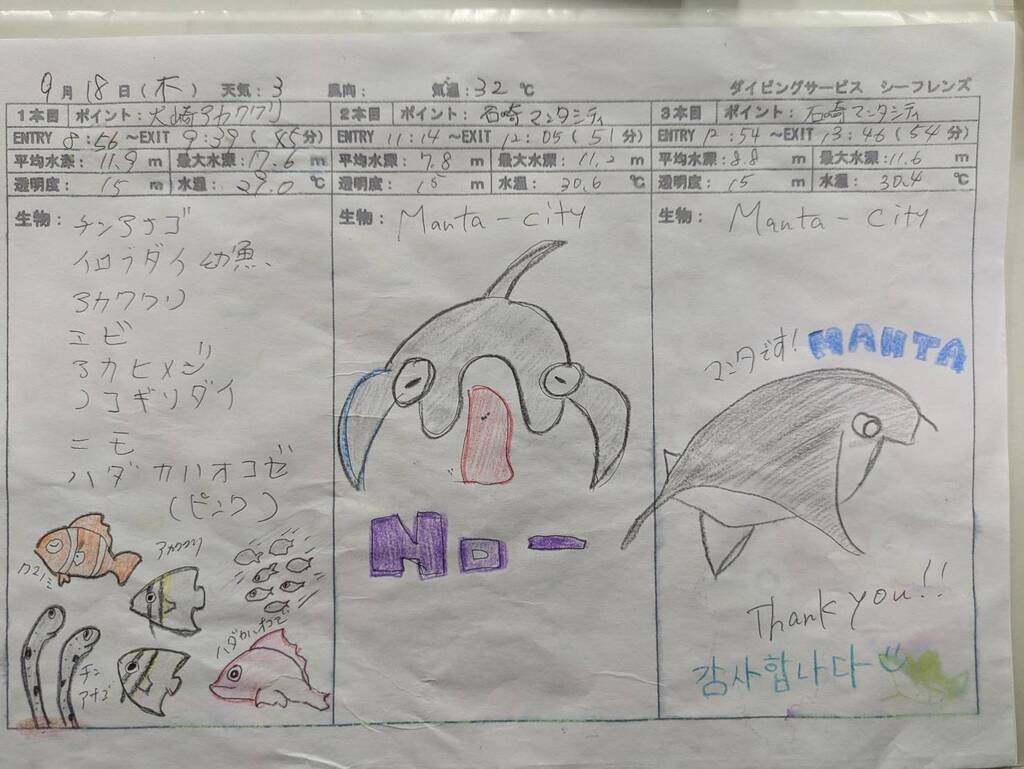 9月18日(木) 天気:3 風向: 気温:32℃ ダイビングサービス シーフレンズ
1本目 ポイント:大崎アカククリ
ENTRY 8:56~EXIT 9:39(85分)
平均水深:11.9m 最大水深:17.6m
透明度:15m 水温:29.0℃
生物:チンアナゴ
イロブダイ幼魚
アカククリ
エビ
アカヒメジ
ノコギリダイ
ニモ
ハダカハオコゼ
(ピンク)
クマノミ
アカククリ
ハダカハオコゼ
チン
アナゴ
2本目 ポイント:石崎マンタシティ
ENTRY 11:14~EXIT 12:05(51分)
平均水深:7.8m 最大水深:11.2m
透明度:15m 水温:30.6℃
生物:Manta-city
NO-
3本目 ポイント:石崎マンタシティ
ENTRY 12:54~EXIT 13:46(54分)
平均水深:8.8m 最大水深:11.6m
透明度:15m 水温:30.4℃
生物:Manta-city
マンタです! MANTA
Thank you!!
감사합니다